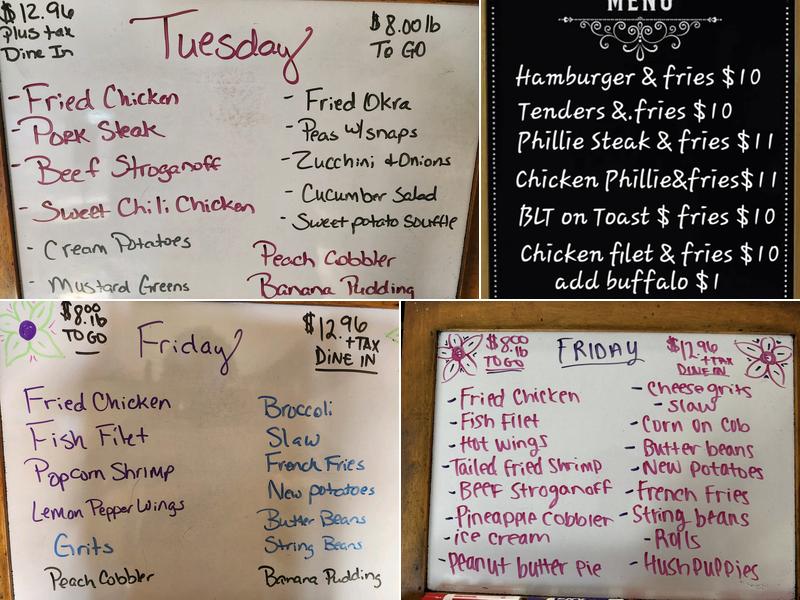 $12.96
plus tax
Dine In
Tuesday
$8.00 lb
To GO
- Fried Chicken
- Pork Steak
- Beef Stroganoff
- Sweet Chili Chicken
- Cream Potatoes
- Mustard Greens
- Fried Okra
- Peas w/snaps
- Zucchini + Onions
- Cucumber Salad
- Sweet potato Souffle
Peach Cobbler
Banana Pudding
MENU
Hamburger & fries $10
Tenders &.fries $10
Phillie Steak & fries $11
Chicken Phillie&fries$11
BLT on Toast $ fries $10
Chicken filet & fries $10
add buffalo $1
$8.00
lb
TO GO
Friday
$12.96
+TAX
DINE IN
Fried Chicken
Fish Filet
Popcorn Shrimp
Lemon Pepper Wings
Grits
Peach Cobbler
Broccoli
Slaw
French Fries
New potatoes
Butter Beans
String Beans
Banana Pudding
$8.00
lb
TO GO
FRIDAY
$12.96
+TAX
DINE IN
- Fried Chicken
- Fish Filet
- Hot Wings
- Tailed Fried Shrimp
- Beef Stroganoff
- Pineapple Cobbler
- ice cream
- Peanut butter Pie
- Cheese grits
- Slaw
- Corn on Cob
- Butter beans
- New Potatoes
- French Fries
- String beans
- Rolls
- Hushpuppies